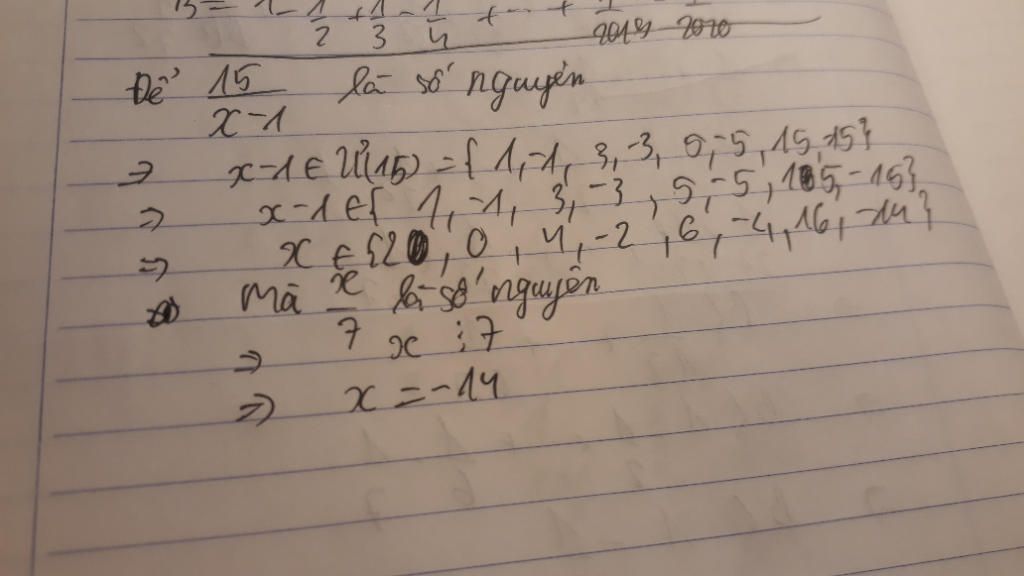 B = 1 - 1/2 + 1/3 - 1/4 + ... + 1/2019 - 1/2020
Để 15/(x-1) là số nguyên
=> x-1 ∈ Ư(15) = { 1, -1, 3, -3, 5, -5, 15, 15}
=> x-1 ∈ { 1, -1, 3, -3, 5, -5, 15, -15}
=> x ∈ {2, 0, 4, -2, 6, -4, 16, -14}
Mà x/7 là số nguyên
=> x ⋮ 7
=> x = -14